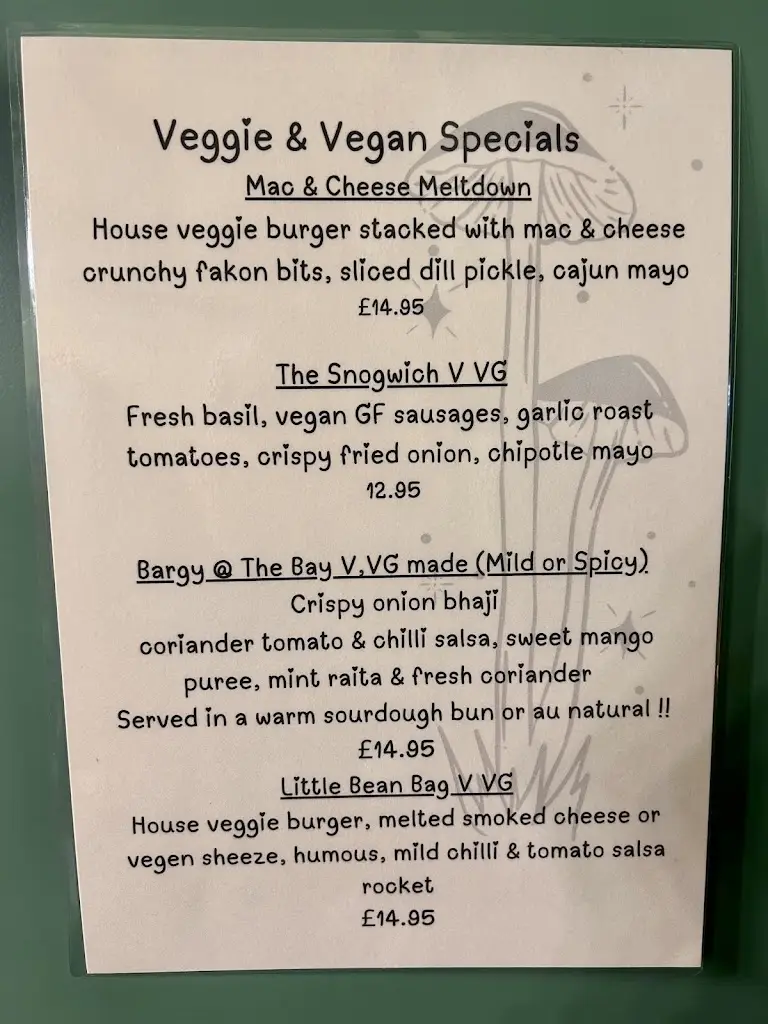 Veggie & Vegan Specials
Mac & Cheese Meltdown
House veggie burger stacked with mac & cheese
crunchy fakon bits, sliced dill pickle, cajun mayo
£14.95
The Snogwich V VG
Fresh basil, vegan GF sausages, garlic roast
tomatoes, crispy fried onion, chipotle mayo
12.95
Bargy @ The Bay V,VG made (Mild or Spicy)
Crispy onion bhaji
coriander tomato & chilli salsa, sweet mango
puree, mint raita & fresh coriander
Served in a warm sourdough bun or au natural !!
£14.95
Little Bean Bag V VG
House veggie burger, melted smoked cheese or
vegen sheeze, humous, mild chilli & tomato salsa
rocket
£14.95